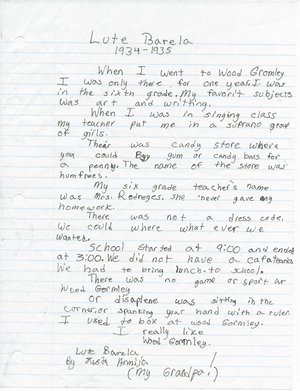 Lute Barela
1934-1935
When I went to Wood Gromley
I was only there for one year. I was
in the sixth grade. My favorit subjects
was art and writting.
When I was in singing class
my teacher put me in a suprano group
of girls.
Their was candy store where
you could Buy gum or candy bars for
a penny. The name of the store was
humfrees.
My six grade teacher's name
was Mrs. Redreges. She never gave any
homework.
There was not a dress code.
We could where what ever we
wanted.
School started at 9:00 and ended
at 3:00. We did not have a cafateria
We had to bring lunch to school.
There was no game or sport at
Wood Gormley
Or disaplene was sitting in the
corner or spanking your hand with a ruler.
I used to box at wood Gormley.
I really like
Wood Gormley.
Lute Barela
By Armijo
(My Grandpa!)